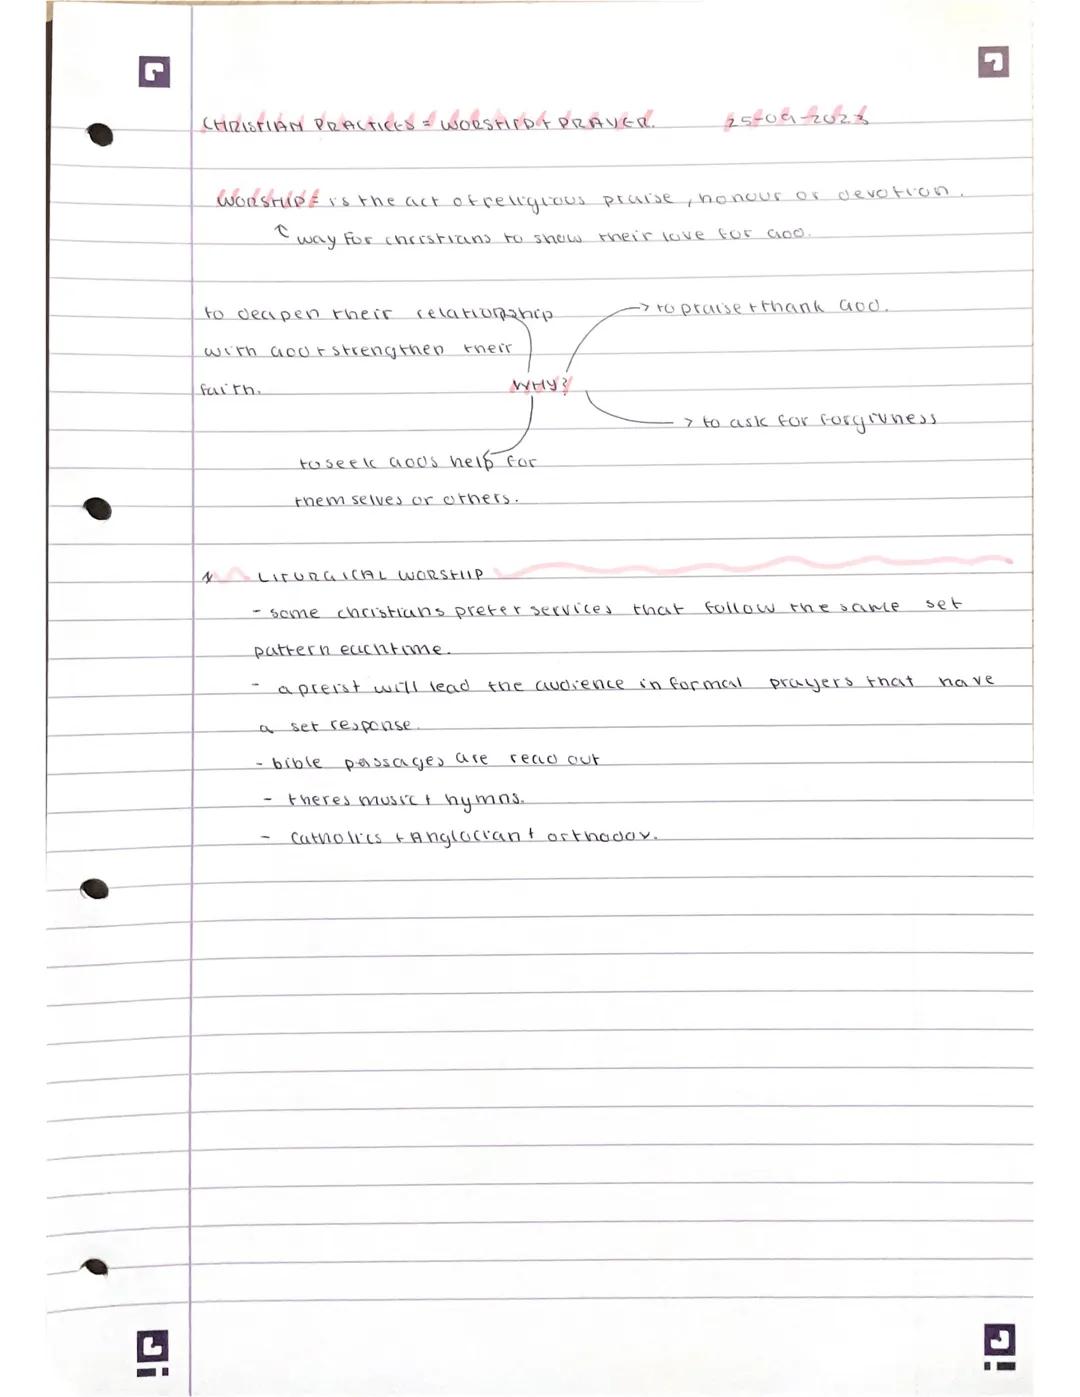 CHRISTIAN PRACTICES = WORSHIP + PRAYER. 25-09-2023
WORSHIP = is the act of religious praise, honour or devotion.
way for christians to show their love for God.
to deapen their relationship
with God + strengthen their
faith.
→ to praise + thank God.
WHY?
→ to ask for forgivness
to seek Gods help for
them selves or others.
LITURGICAL WORSHIP
- some christians prefer services that follow the same set
pattern eachtime.
- a preist will lead the audience in formal prayers that have
a set response.
- bible passages are read out
- theres music + hymns.
- Catholics + Anglacian + orthodox.